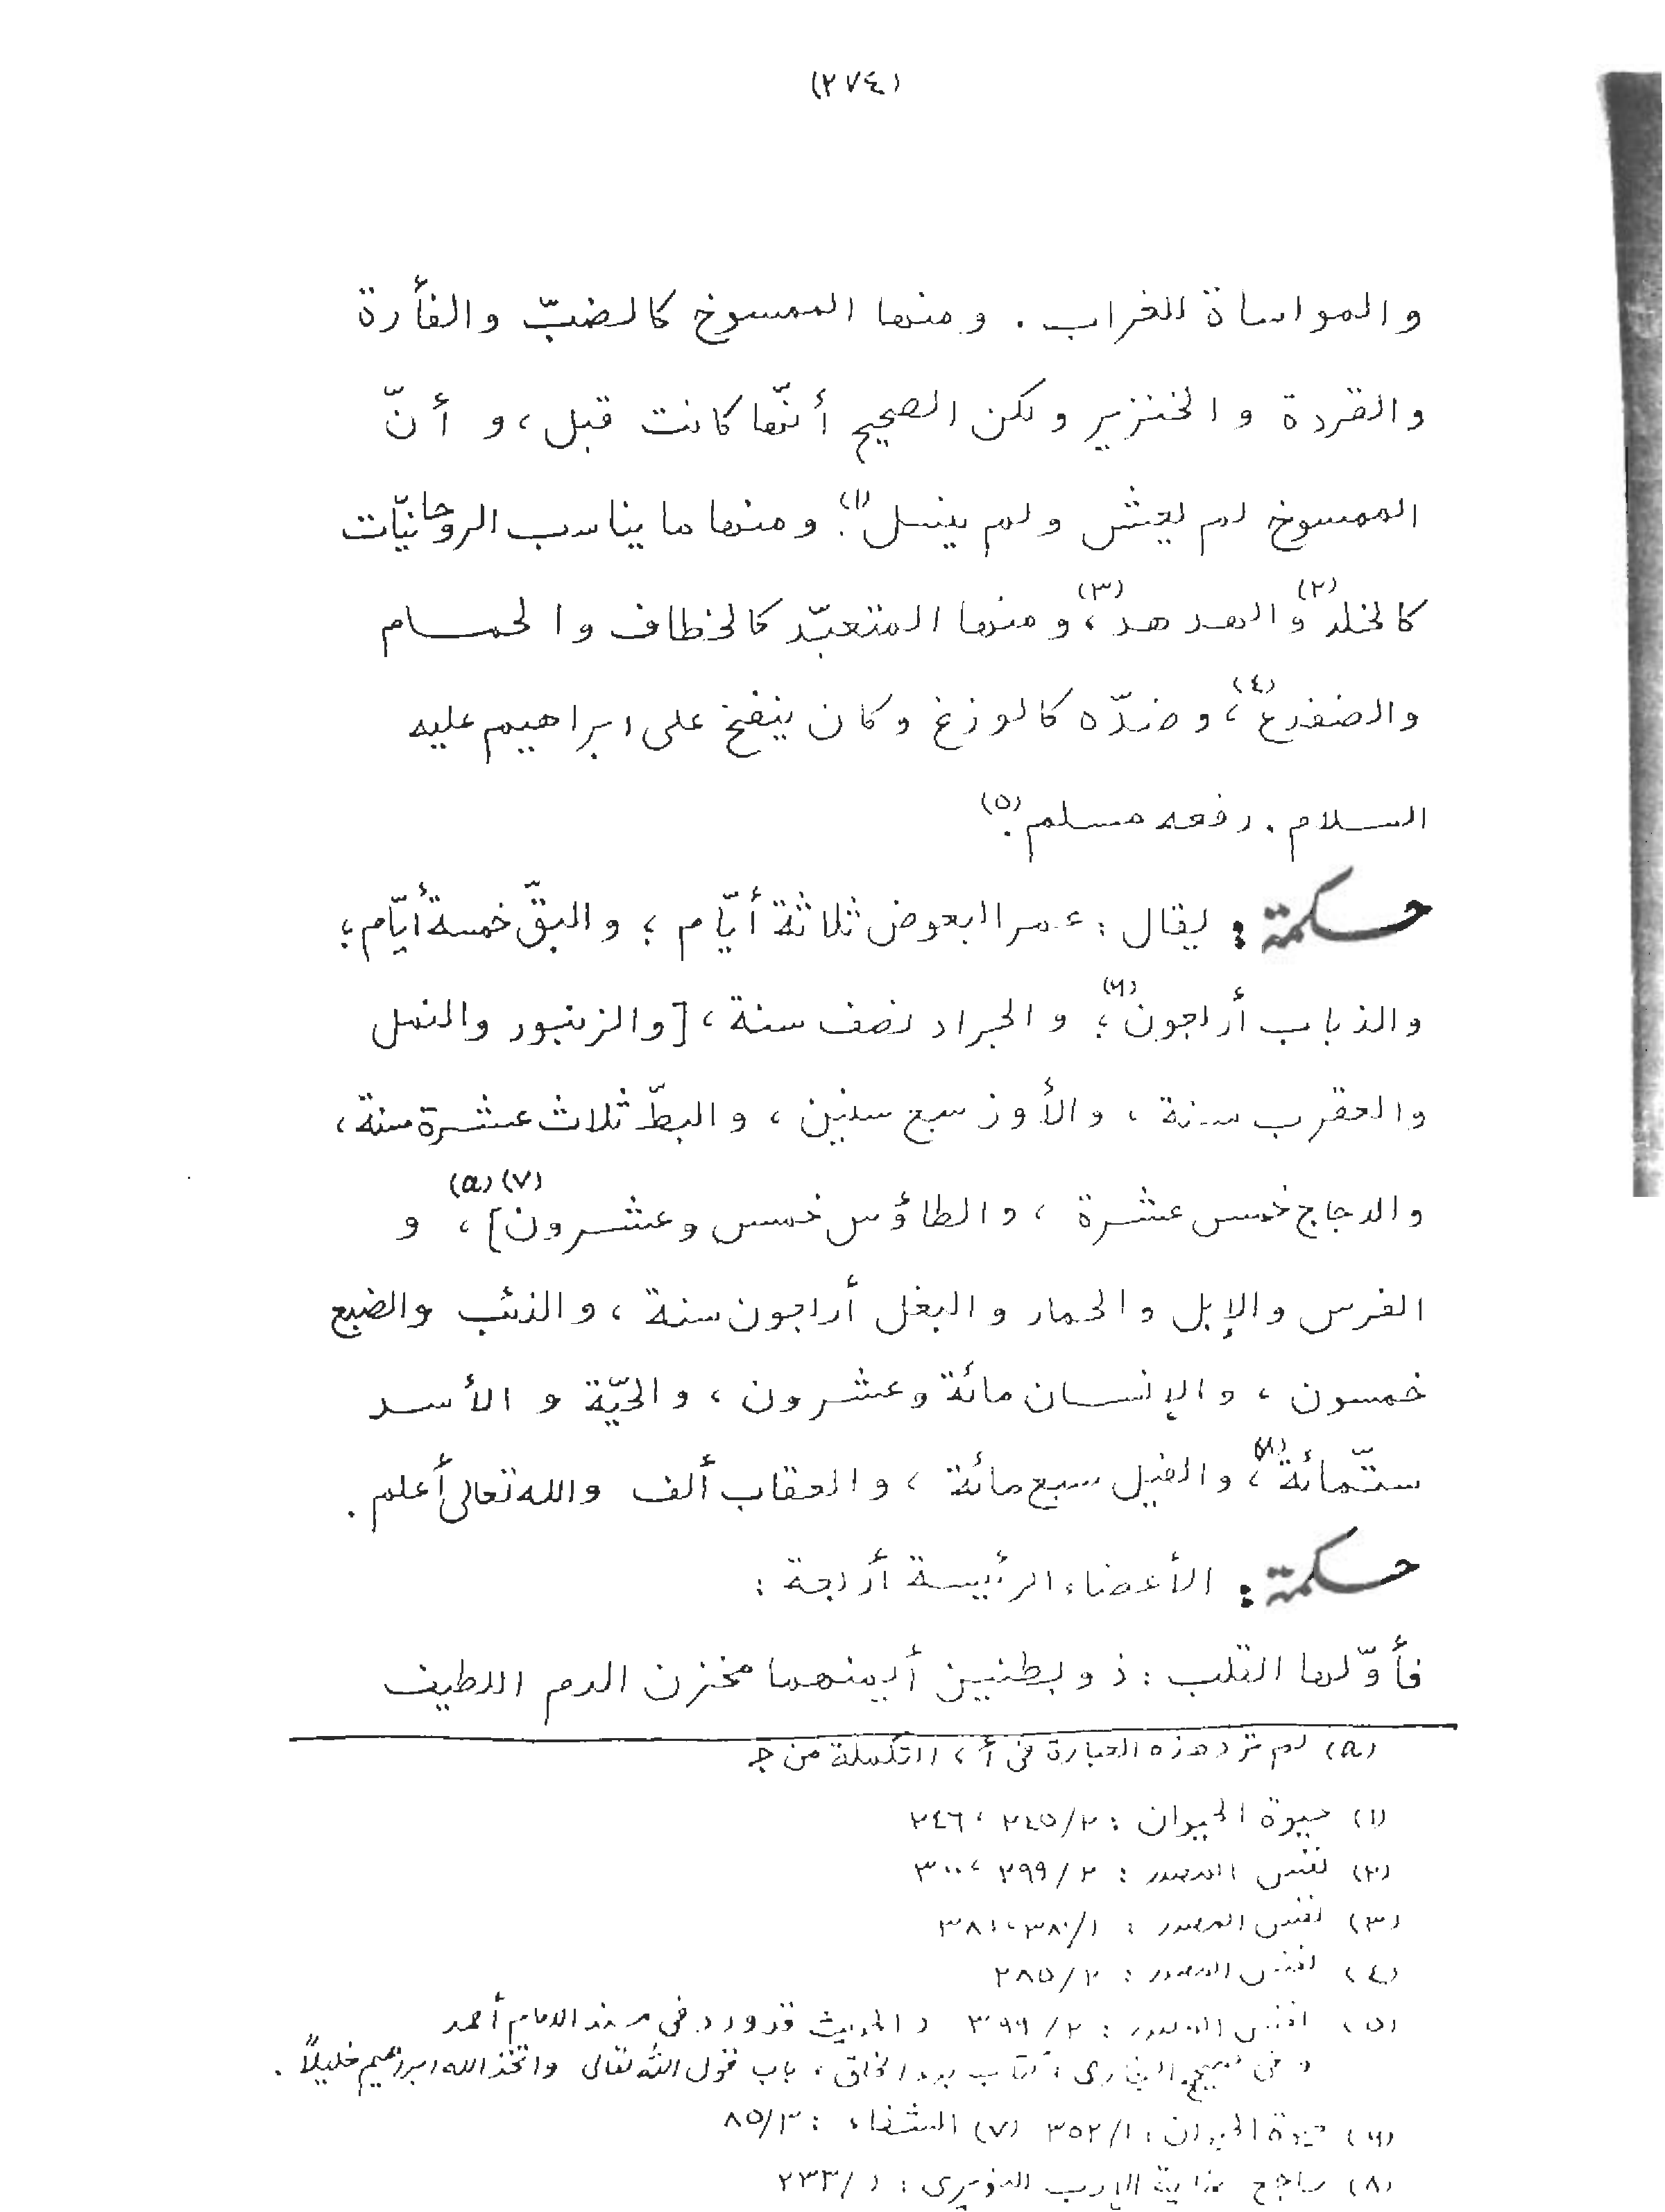 (٢٧٤)
والمواساة للغراب . ومنها الممسوخ كالضبّ والفأرة
والقردة والخنزير ولكن الصحيح أنّها كانت قبل ، و أنّ
الممسوخ لم يعش ولم ينسل (١). ومنها ما يناسب الروحانيّات
كالخلد (٢) والهدهد (٣)، ومنها المتعبّد كالخطاف والحمام
والضفدع (٤)، وضدّه كالوزغ وكان ينفخ على ابراهيم عليه
السلام . رفعه مسلم (٥).
حكمة : يقال : عمر البعوض ثلاثة أيّام ؛ والبقّ خمسة أيّام ؛
والذباب أربعون (٦)؛ والجراد نصف سنة ، [والزنبور والنمل
والعقرب سنة ، والأوز سبع سنين ، والبطّ ثلاث عشرة سنة ،
والدجاج خمس عشرة ، والطاؤس خمس وعشرون] (٧) (a) ، و
الفرس والإبل والحمار والبغل أربعون سنة ، والذئب والضبع
خمسون ، والإنسان مائة وعشرون ، والحيّة والأسد
ستّمائة (٨)، والفيل سبع مائة ، والعقاب ألف والله تعالى أعلم .
حكمة : الأعضاء الرئيسة أربعة :
فأوّلها القلب : ذو بطنين أيمنهما مخزن الدم اللطيف
(a) لم ترد هذه العبارة في أ ، التكملة من ج
(١) حيوة الحيوان : ٢/٢٤٥ ، ٢٤٦
(٢) نفس المصدر : ٢/ ٢٩٩ ، ٣٠٠
(٣) نفس المصدر : ١/ ٣٨٠ ، ٣٨١
(٤) نفس المصدر : ٢/ ٢٨٥
(٥) نفس المصدر : ٢/ ٣٩٩ والحديث قد ورد في مسند الامام أحمد
وفي صحيح البخاري ، كتاب بدء الخلق ، باب قول الله تعالى واتخذ الله ابراهيم خليلاً .
(٦) حيوة الحيوان : ١/ ٣٥٢ (٧) الشفاء : ٣/ ٨٥
(٨) راجع نهاية الارب للنويري : ١/ ٢٣٣